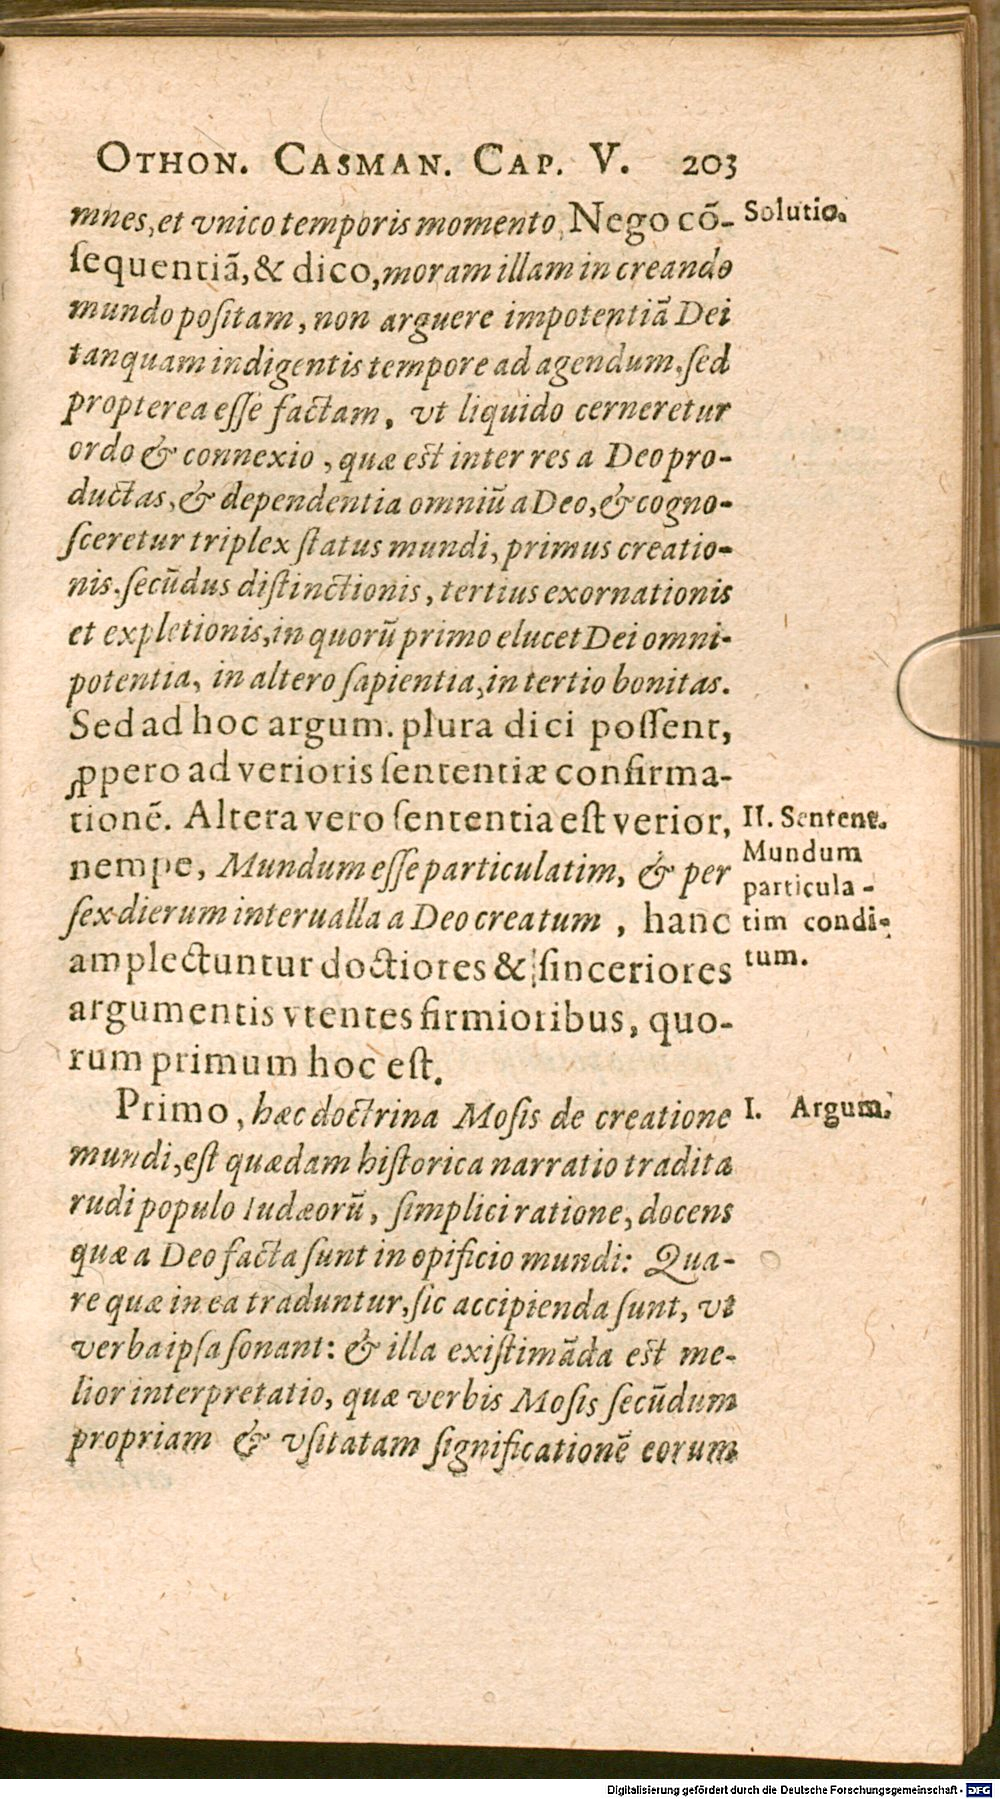 OTHON. CASMAN. CAP. V. 203
mnes, et vnico temporis momento, Nego cõ-
Solutio.
ſequentiã, & dico, moram illam in creando
mundo poſitam, non arguere impotentiã Dei
tanquam indigentis tempore ad agendum, ſed
propterea eſſe factam, vt liquido cerneretur
ordo & connexio, quæ est inter res a Deo pro-
ductas, & dependentia omniũ a Deo, & cogno-
ſceretur triplex ſtatus mundi, primus creatio-
nis. ſecũdus diſtinctionis, tertius exornationis
et expletionis, in quorũ primo elucet Dei omni-
potentia, in altero ſapientia, in tertio bonitas.
Sed ad hoc argum. plura dici poſſent,
ꝓpero ad verioris ſententiæ confirma-
tionẽ. Altera vero ſententia eſt verior,
nempe, Mundum eſſe particulatim, & per
ſex dierum interualla a Deo creatum, hanc
amplectuntur doctiores & ſinceriores
argumentis vtentes firmioribus, quo-
rum primum hoc eſt.
II. Sentent.
Mundum
particula-
tim condi-
tum.
Primo, hæc doctrina Moſis de creatione
I. Argum.
mundi, eſt quædam hiſtorica narratio tradita
rudi populo Iudæorũ, ſimplici ratione, docens
quæ a Deo facta ſunt in opificio mundi: Qua-
re quæ in ea traduntur, ſic accipienda ſunt, vt
verba ipſa ſonant: & illa exiſtimãda est me-
lior interpretatio, quæ verbis Moſis ſecũdum
propriam & vſitatam ſignificationẽ eorum
Digitalisierung gefördert durch die Deutsche Forschungsgemeinschaft - DFG